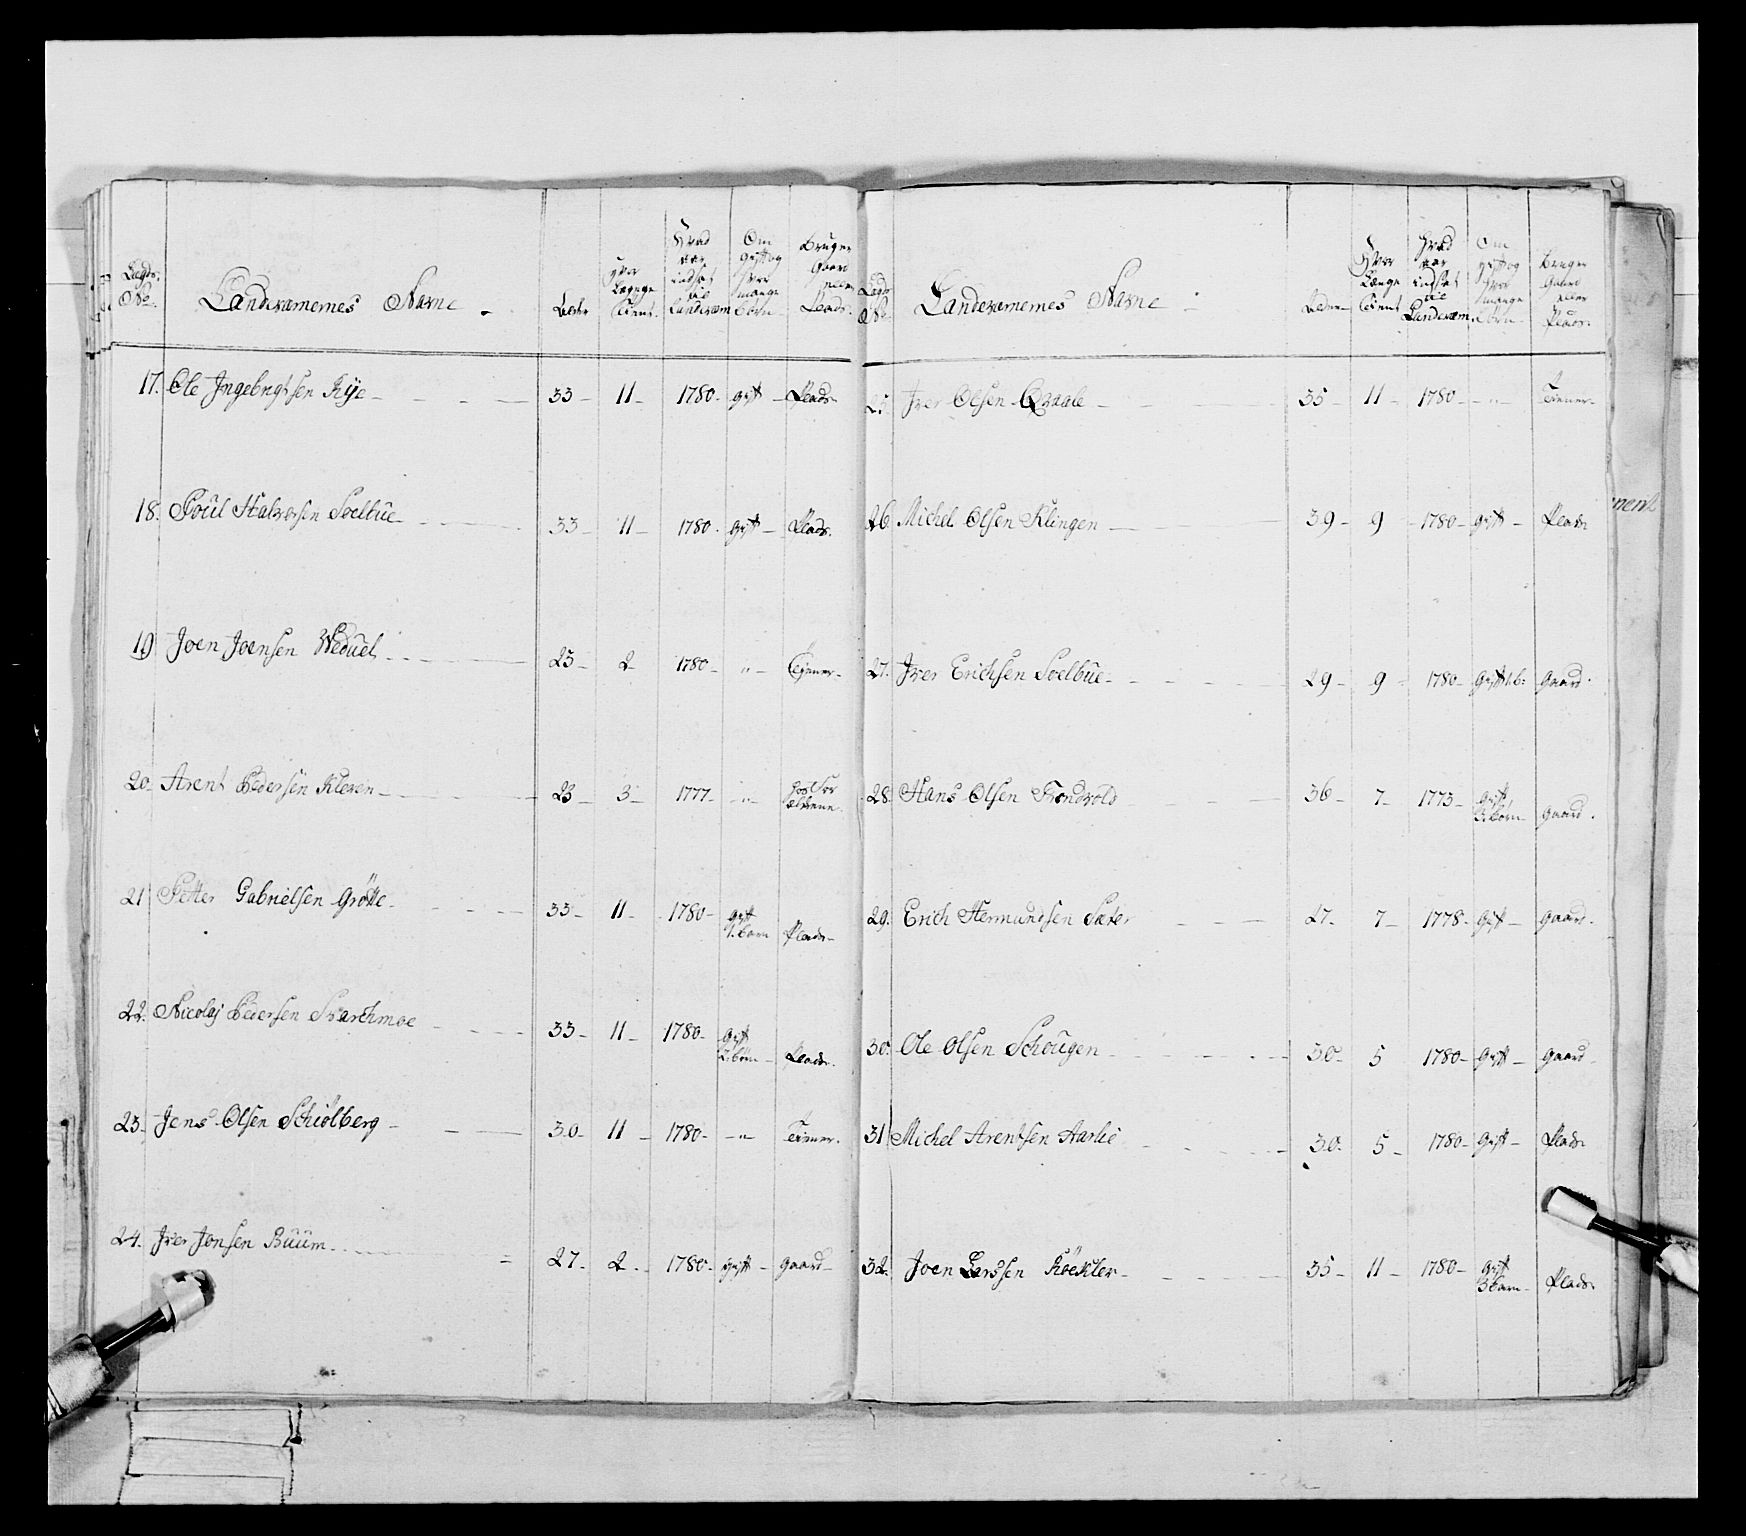 Lægds No. Landværnernes Navne Alder Hvor Længe Tient. Hvad aar indsat til Landværn Om gift og Hvor mange Börn Bruger Gaard eller Plads.
17. Ole Ingebrigtsen Rye 33 11 1780 gift Plads
18. Poül Halvorsen Soelbüe 33 11 1780 gift Plads.
19 Joen Joensen 25 2 1780 " Tiener
20. Arent Pedersen Kleven 23 3 1777 " hos For ældrene
21 Petter Gabrielsen Grötte 33 11 1780 gift 1. barn Plads
22. Nicolaj Pedersen Svarthmoe 33 11 1780 gift 2. börn Plads.
23. Jens Olsen Schiölberg 30 11 1780 " Tiener.
24. Iver Jonsen Buüm 27 2 1780 gift gaard
Lægds No. Landværnernes Navne Alder Hvor Længe Tient Hvad aar indsat til Landværn. Om gift og Hvor mange Börn Bruger Gaard eller Plads.
25. Iver Olsen Qvaale 35 11 1780 " Tiener
26 Michel Olsen Klingen 39 9 1780 gift Plads
27. Iver Erichsen Soelbüe 29 9 1780 Gift 1.b: Gaard.
28. Hans Olsen 36 7 1773 gift 3. börn gaard.
29. Erich Hermundsen Sæter 27. 7 1778 Gift gaard.
30. Ole Olsen Schougen 30 5 1780 gift gaard
31 Michel Arentsen Aarlie 30 5 1780 gift Plads
32. Joen Larssen 35 11 1780 gift 3 barn Plads